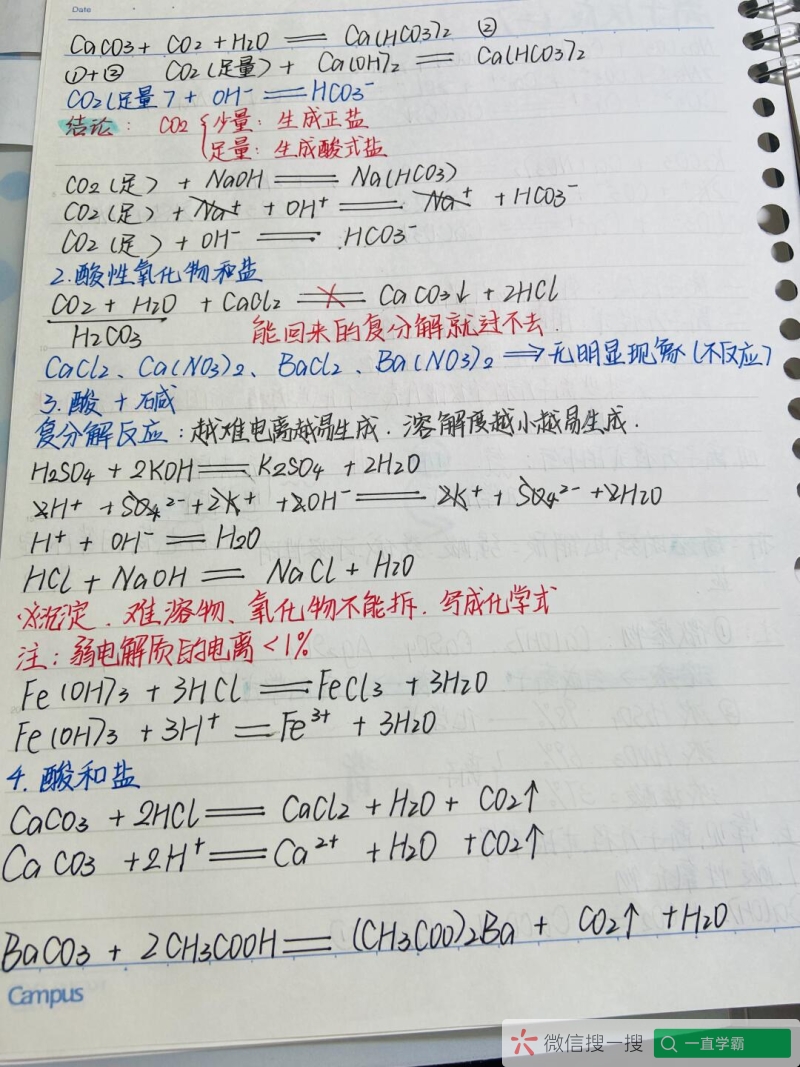 Date
CaCO3 + CO2 + H2O == Ca(HCO3)2 ②
①+② CO2(足量) + Ca(OH)2 == Ca(HCO3)2
CO2(足量) + OH⁻ == HCO3⁻
结论: CO2 { 少量: 生成正盐
足量: 生成酸式盐
CO2(足) + NaOH == Na(HCO3)
CO2(足) + Na⁺ + OH⁺ == Na⁺ + HCO3⁻
CO2(足) + OH⁻ == HCO3⁻
2.酸性氧化物和盐
CO2 + H2O + CaCl2 =×= CaCO3↓ + 2HCl
H2CO3 能回来的复分解就过不去.
CaCl2、Ca(NO3)2、BaCl2、Ba(NO3)2 ⇒ 无明显现象(不反应)
3.酸 + 碱
复分解反应:越难电离越易生成.溶解度越小越易生成.
H2SO4 + 2KOH == K2SO4 + 2H2O
2H⁺ + SO4²⁻ + 2K⁺ + 2OH⁻ == 2K⁺ + SO4²⁻ + 2H2O
H⁺ + OH⁻ == H2O
HCl + NaOH == NaCl + H2O
※沉淀.难溶物、氧化物不能拆.写成化学式
注:弱电解质的电离<1%
Fe(OH)3 + 3HCl == FeCl3 + 3H2O
Fe(OH)3 + 3H⁺ == Fe³⁺ + 3H2O
4.酸和盐
CaCO3 + 2HCl == CaCl2 + H2O + CO2↑
CaCO3 + 2H⁺ == Ca²⁺ + H2O + CO2↑
BaCO3 + 2CH3COOH == (CH3COO)2Ba + CO2↑ + H2O
Campus
微信搜一搜 一直学霸